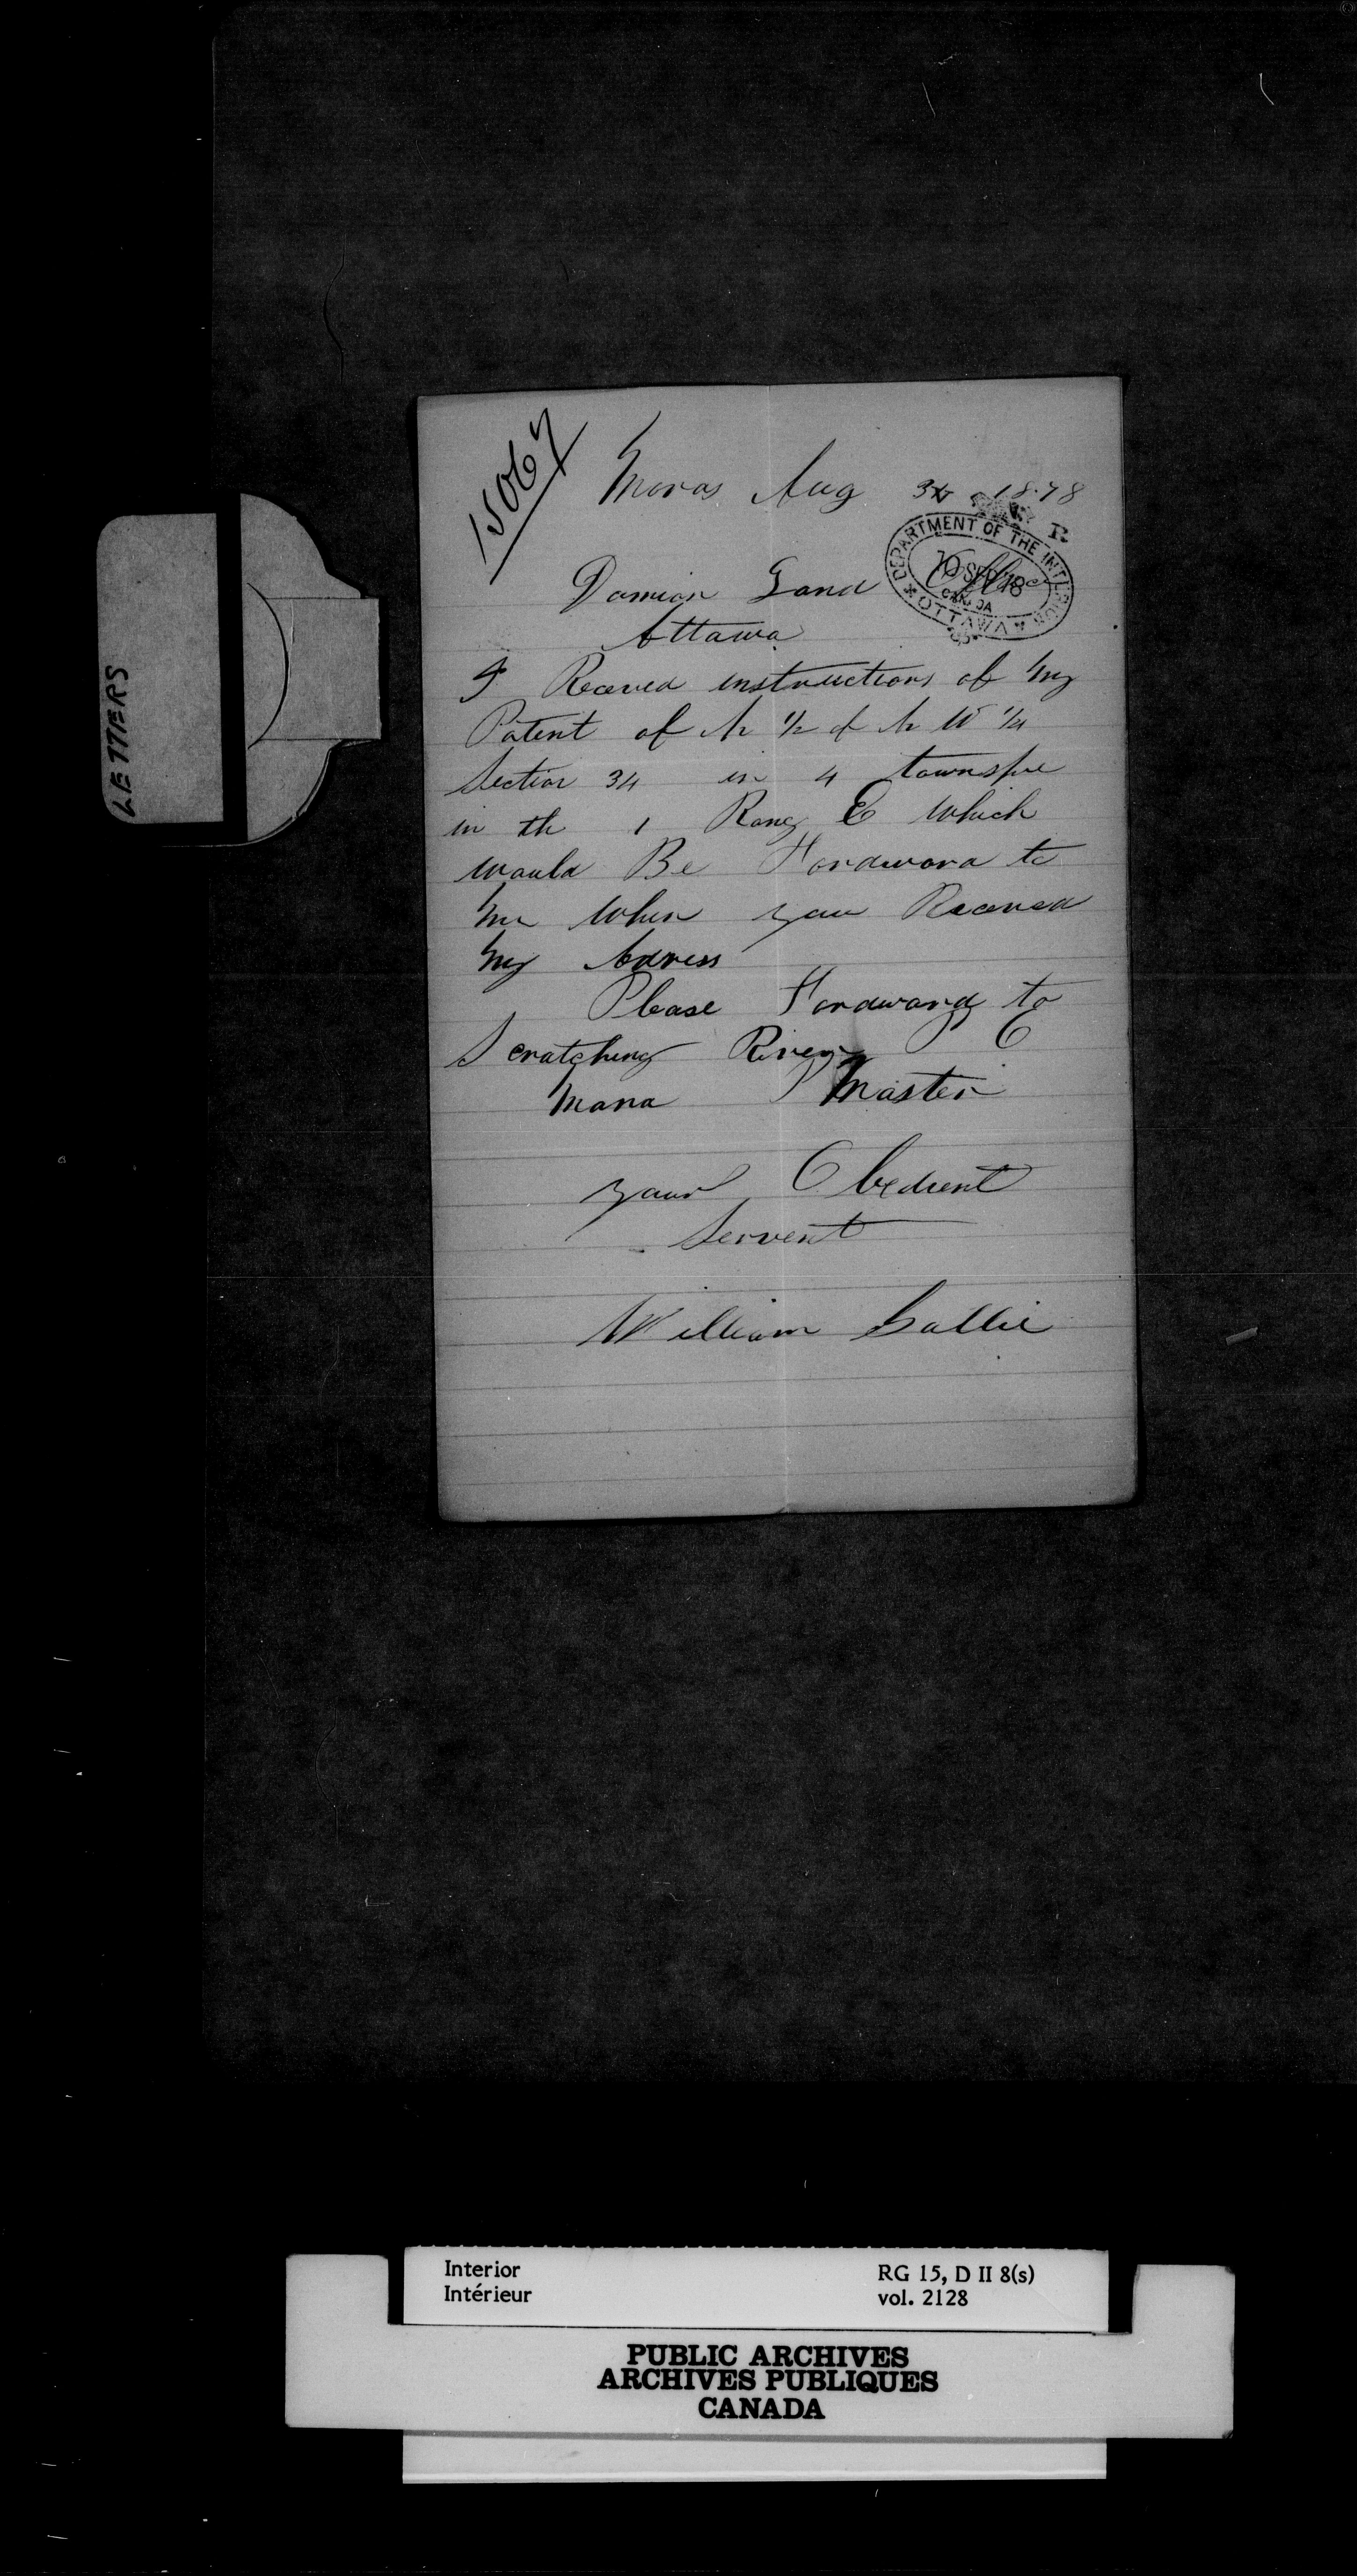 LETTERS
15067
Moras Aug 31 1878
DEPARTMENT OF THE INTERIOR
10 SEP 78
CANADA
OTTAWA
R
Domion Land Office
Ottawa
I Receved instructions of my
Patent of N 1/2 of N W 1/4
Section 34 in 4 townspe
in th 1 Rang E which
would Be Fordword to
me when you Receved
my Adress
Please Fordward to
Scratching River P O
Mana Master
your Obedient
Servent
William Gallie
Interior
Intérieur
RG 15, D II 8(s)
vol. 2128
PUBLIC ARCHIVES
ARCHIVES PUBLIQUES
CANADA